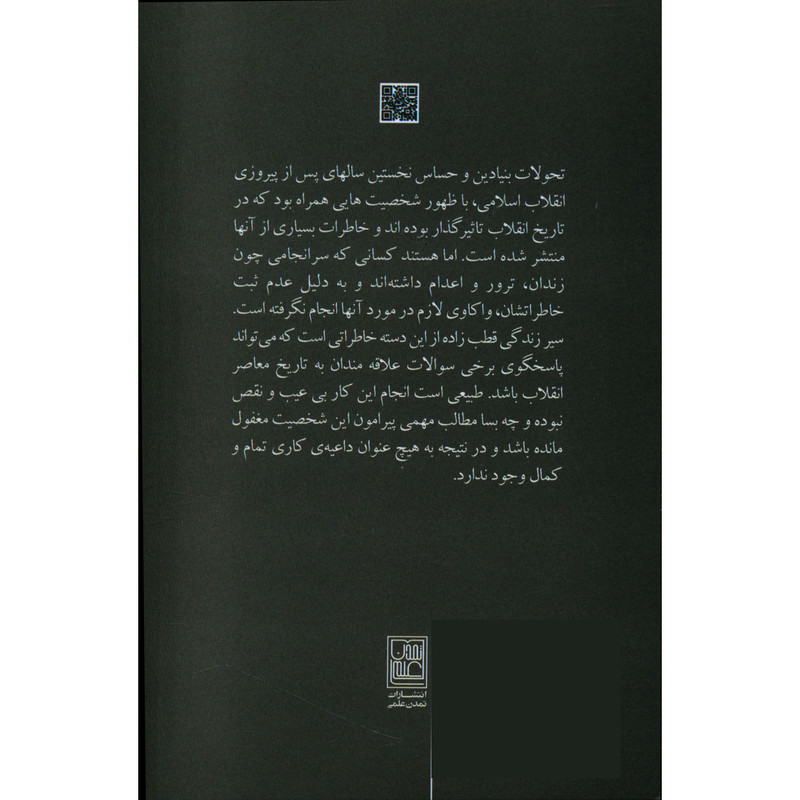 تحولات بنیادین و حساس نخستین سالهای پس از پیروزی
انقلاب اسلامی، با ظهور شخصیت هایی همراه بود که در
تاریخ انقلاب تاثیرگذار بوده اند و خاطرات بسیاری از آنها
منتشر شده است. اما هستند کسانی که سرانجامی چون
زندان، ترور و اعدام داشته‌اند و به دلیل عدم ثبت
خاطراتشان، واکاوی لازم در مورد آنها انجام نگرفته است.
سیر زندگی قطب زاده از این دسته خاطراتی است که می‌تواند
پاسخگوی برخی سوالات علاقه مندان به تاریخ معاصر
انقلاب باشد. طبیعی است انجام این کار بی عیب و نقص
نبوده و چه بسا مطالب مهمی پیرامون این شخصیت مغفول
مانده باشد و در نتیجه به هیچ عنوان داعیه‌ی کاری تمام و
کمال وجود ندارد.
تمدن علمی
انتشارات
تمدن علمی